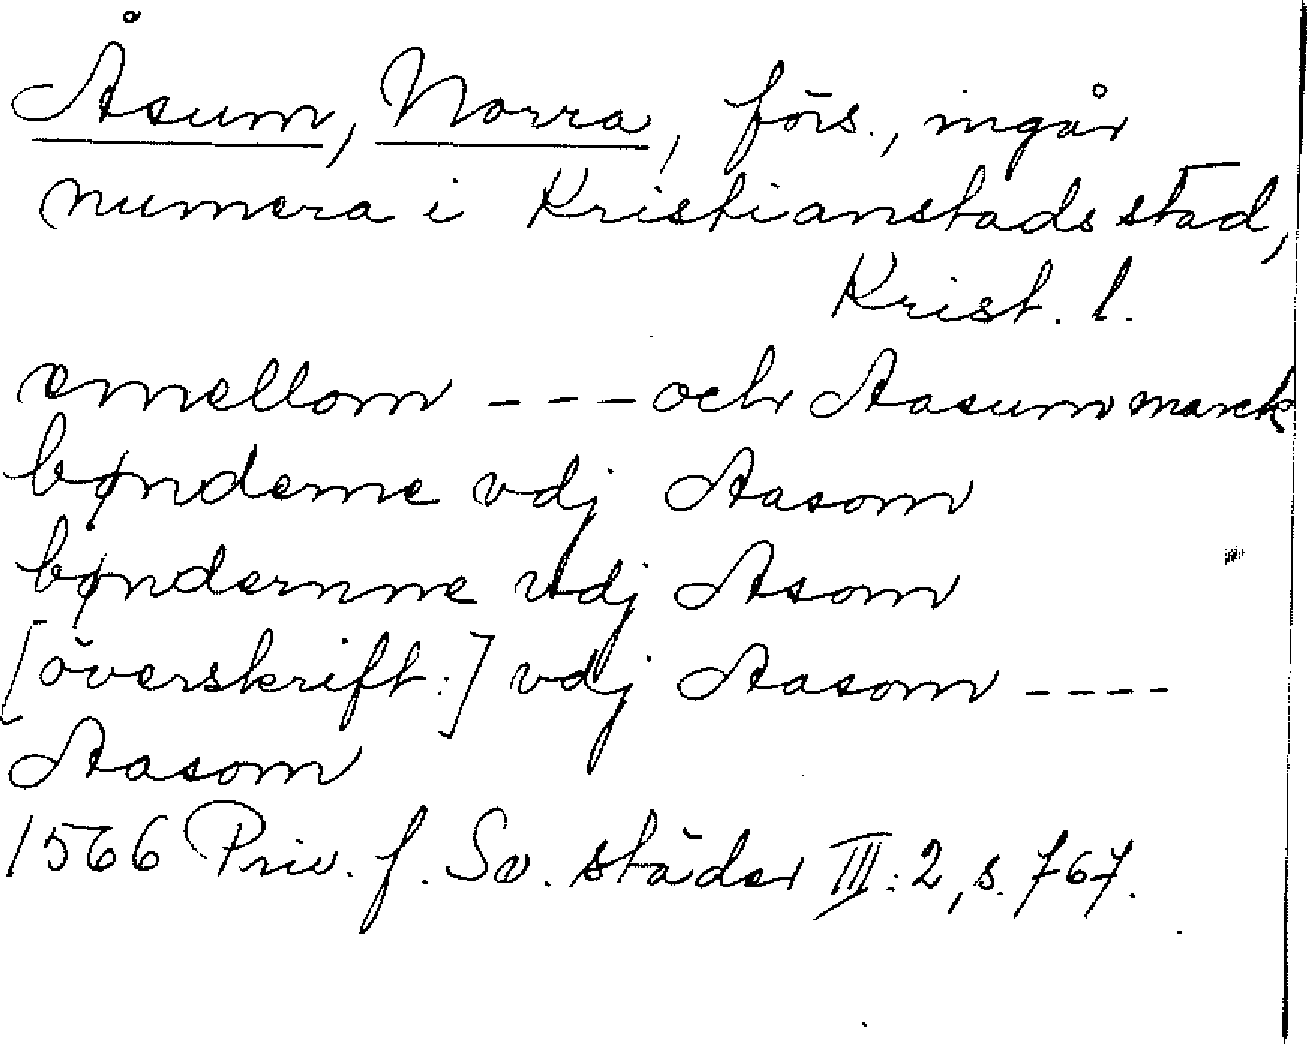 Åsum, Norra, förs., ingår
numera i Kristianstads stad,
Krist. l.
emellom --- och Aasum marck
bønderne vdj Aasom
bøndernne vdj Asom
[överskrift:] vdj Aasom ----
Aasom
1566 Priv. f. Sv. städer III:2, s. 767.